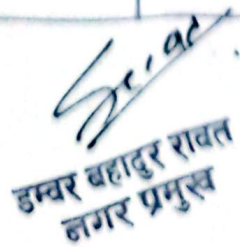 डम्वर बहादुर रावत
नगर प्रमुख